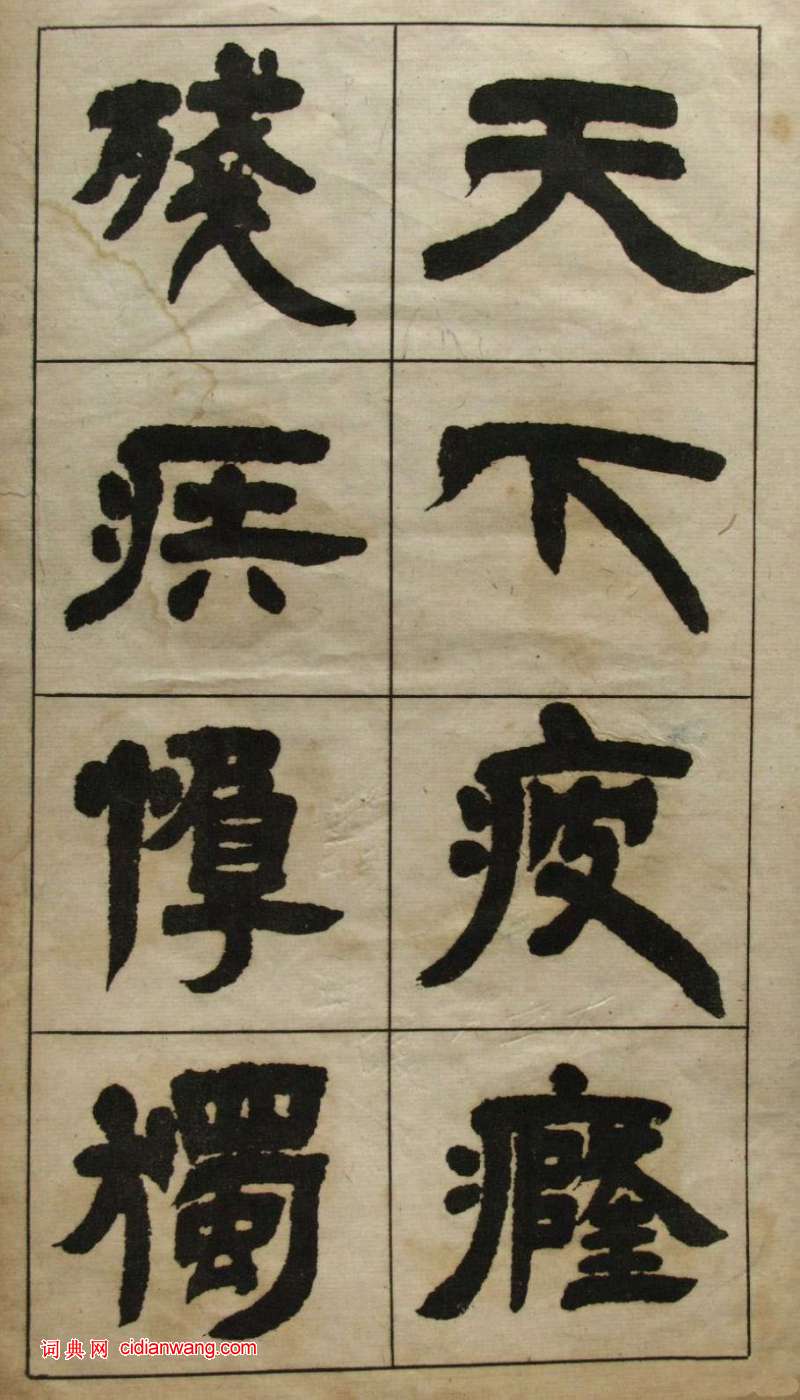 天下疲癃
殘疾惸獨
词典网 cidianwang.com